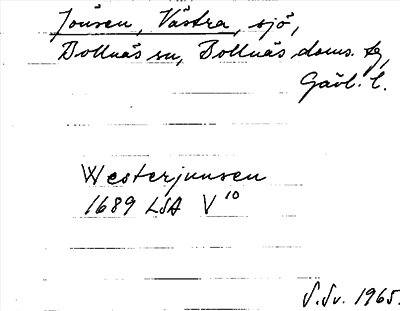 Jonsen, Västra, sjö,
Bollnäs sn, Bollnäs doms. tg,
Gävl. l.
Westerjunsen
1689 LSA V¹⁰
S.Sv. 1965.